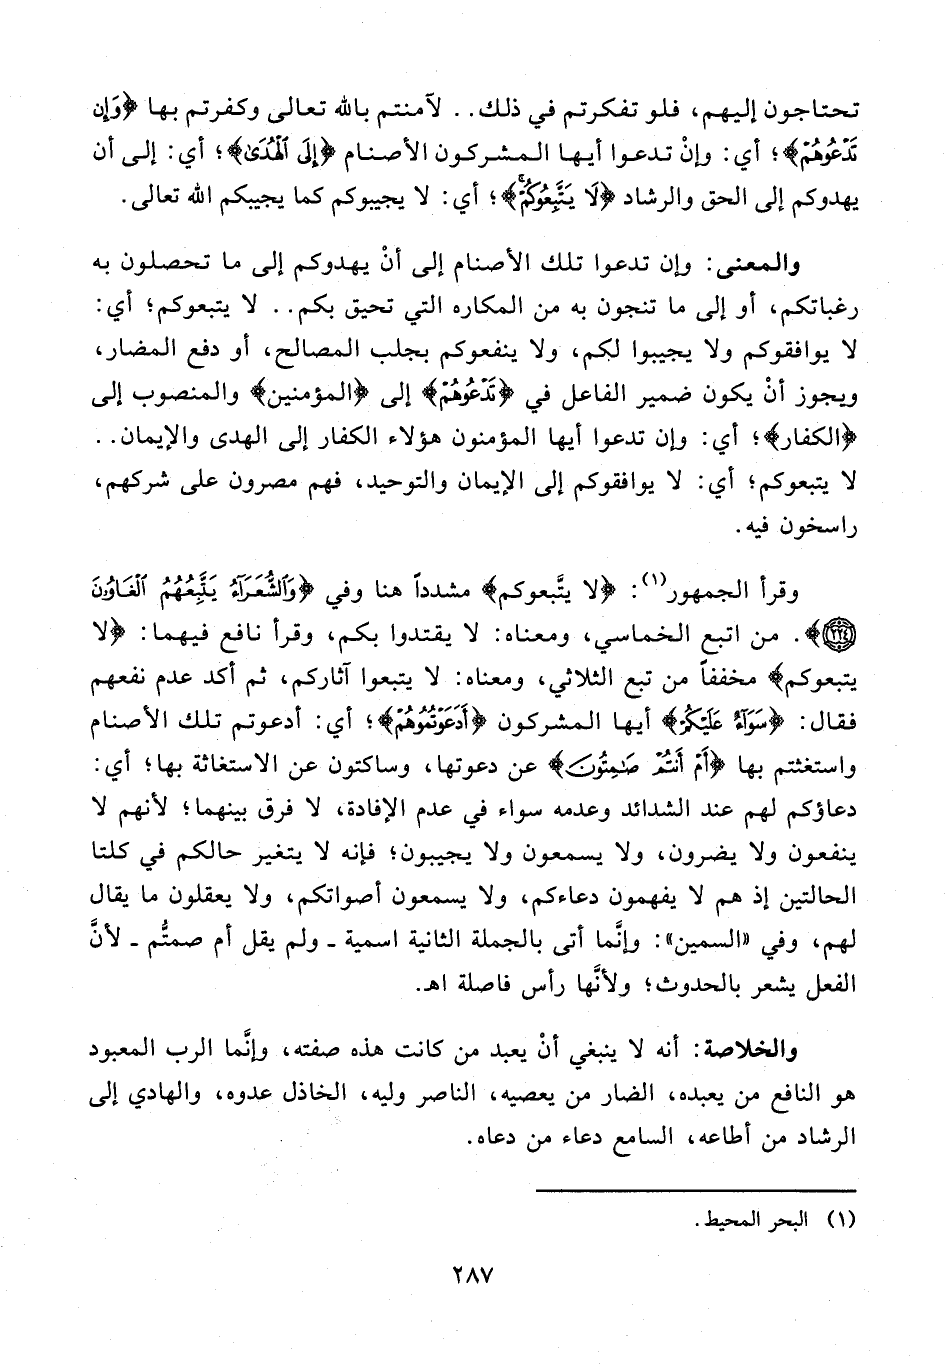 تحتاجون إليهم، فلو تفكرتم في ذلك.. لآمنتم بالله تعالى وكفرتم بها ﴿وَإِن
تَدْعُوهُمْ﴾؛ أي: وإنْ تدعوا أيها المشركون الأصنام ﴿إِلَى ٱلْهُدَىٰ﴾؛ أي: إلى أن
يهدوكم إلى الحق والرشاد ﴿لَا يَتَّبِعُوكُمْ ۚ﴾؛ أي: لا يجيبوكم كما يجيبكم الله تعالى.
والمعنى: وإن تدعوا تلك الأصنام إلى أنْ يهدوكم إلى ما تحصلون به
رغباتكم، أو إلى ما تنجون به من المكاره التي تحيق بكم.. لا يتبعوكم؛ أي:
لا يوافقوكم ولا يجيبوا لكم، ولا ينفعوكم بجلب المصالح، أو دفع المضار،
ويجوز أنْ يكون ضمير الفاعل في ﴿تَدْعُوهُمْ﴾ إلى ﴿المؤمنين﴾ والمنصوب إلى
﴿الكفار﴾؛ أي: وإن تدعوا أيها المؤمنون هؤلاء الكفار إلى الهدى والإيمان..
لا يتبعوكم؛ أي: لا يوافقوكم إلى الإيمان والتوحيد، فهم مصرون على شركهم،
راسخون فيه.
وقرأ الجمهور(١): ﴿لا يتَّبعوكم﴾ مشدداً هنا وفي ﴿وَٱلشُّعَرَآءُ يَتَّبِعُهُمُ ٱلْغَاوُۥنَ
﴿٢٢٤﴾﴾. من اتبع الخماسي، ومعناه: لا يقتدوا بكم، وقرأ نافع فيهما: ﴿لا
يتبعوكم﴾ مخففاً من تبع الثلاثي، ومعناه: لا يتبعوا آثاركم، ثم أكد عدم نفعهم
فقال: ﴿سَوَآءٌ عَلَيْكُمْ﴾ أيها المشركون ﴿أَدَعَوْتُمُوهُمْ﴾؛ أي: أدعوتم تلك الأصنام
واستغثتم بها ﴿أَمْ أَنتُمْ صَٰمِتُونَ﴾ عن دعوتها، وساكتون عن الاستغاثة بها؛ أي:
دعاؤكم لهم عند الشدائد وعدمه سواء في عدم الإفادة، لا فرق بينهما؛ لأنهم لا
ينفعون ولا يضرون، ولا يسمعون ولا يجيبون؛ فإنه لا يتغير حالكم في كلتا
الحالتين إذ هم لا يفهمون دعاءكم، ولا يسمعون أصواتكم، ولا يعقلون ما يقال
لهم، وفي «السمين»: وإنَّما أتى بالجملة الثانية اسمية ـ ولم يقل أم صمتُّم ـ لأنَّ
الفعل يشعر بالحدوث؛ ولأنَّها رأس فاصلة اهـ.
والخلاصة: أنه لا ينبغي أنْ يعبد من كانت هذه صفته، وإنَّما الرب المعبود
هو النافع من يعبده، الضار من يعصيه، الناصر وليه، الخاذل عدوه، والهادي إلى
الرشاد من أطاعه، السامع دعاء من دعاه.
(١) البحر المحيط.
٢٨٧